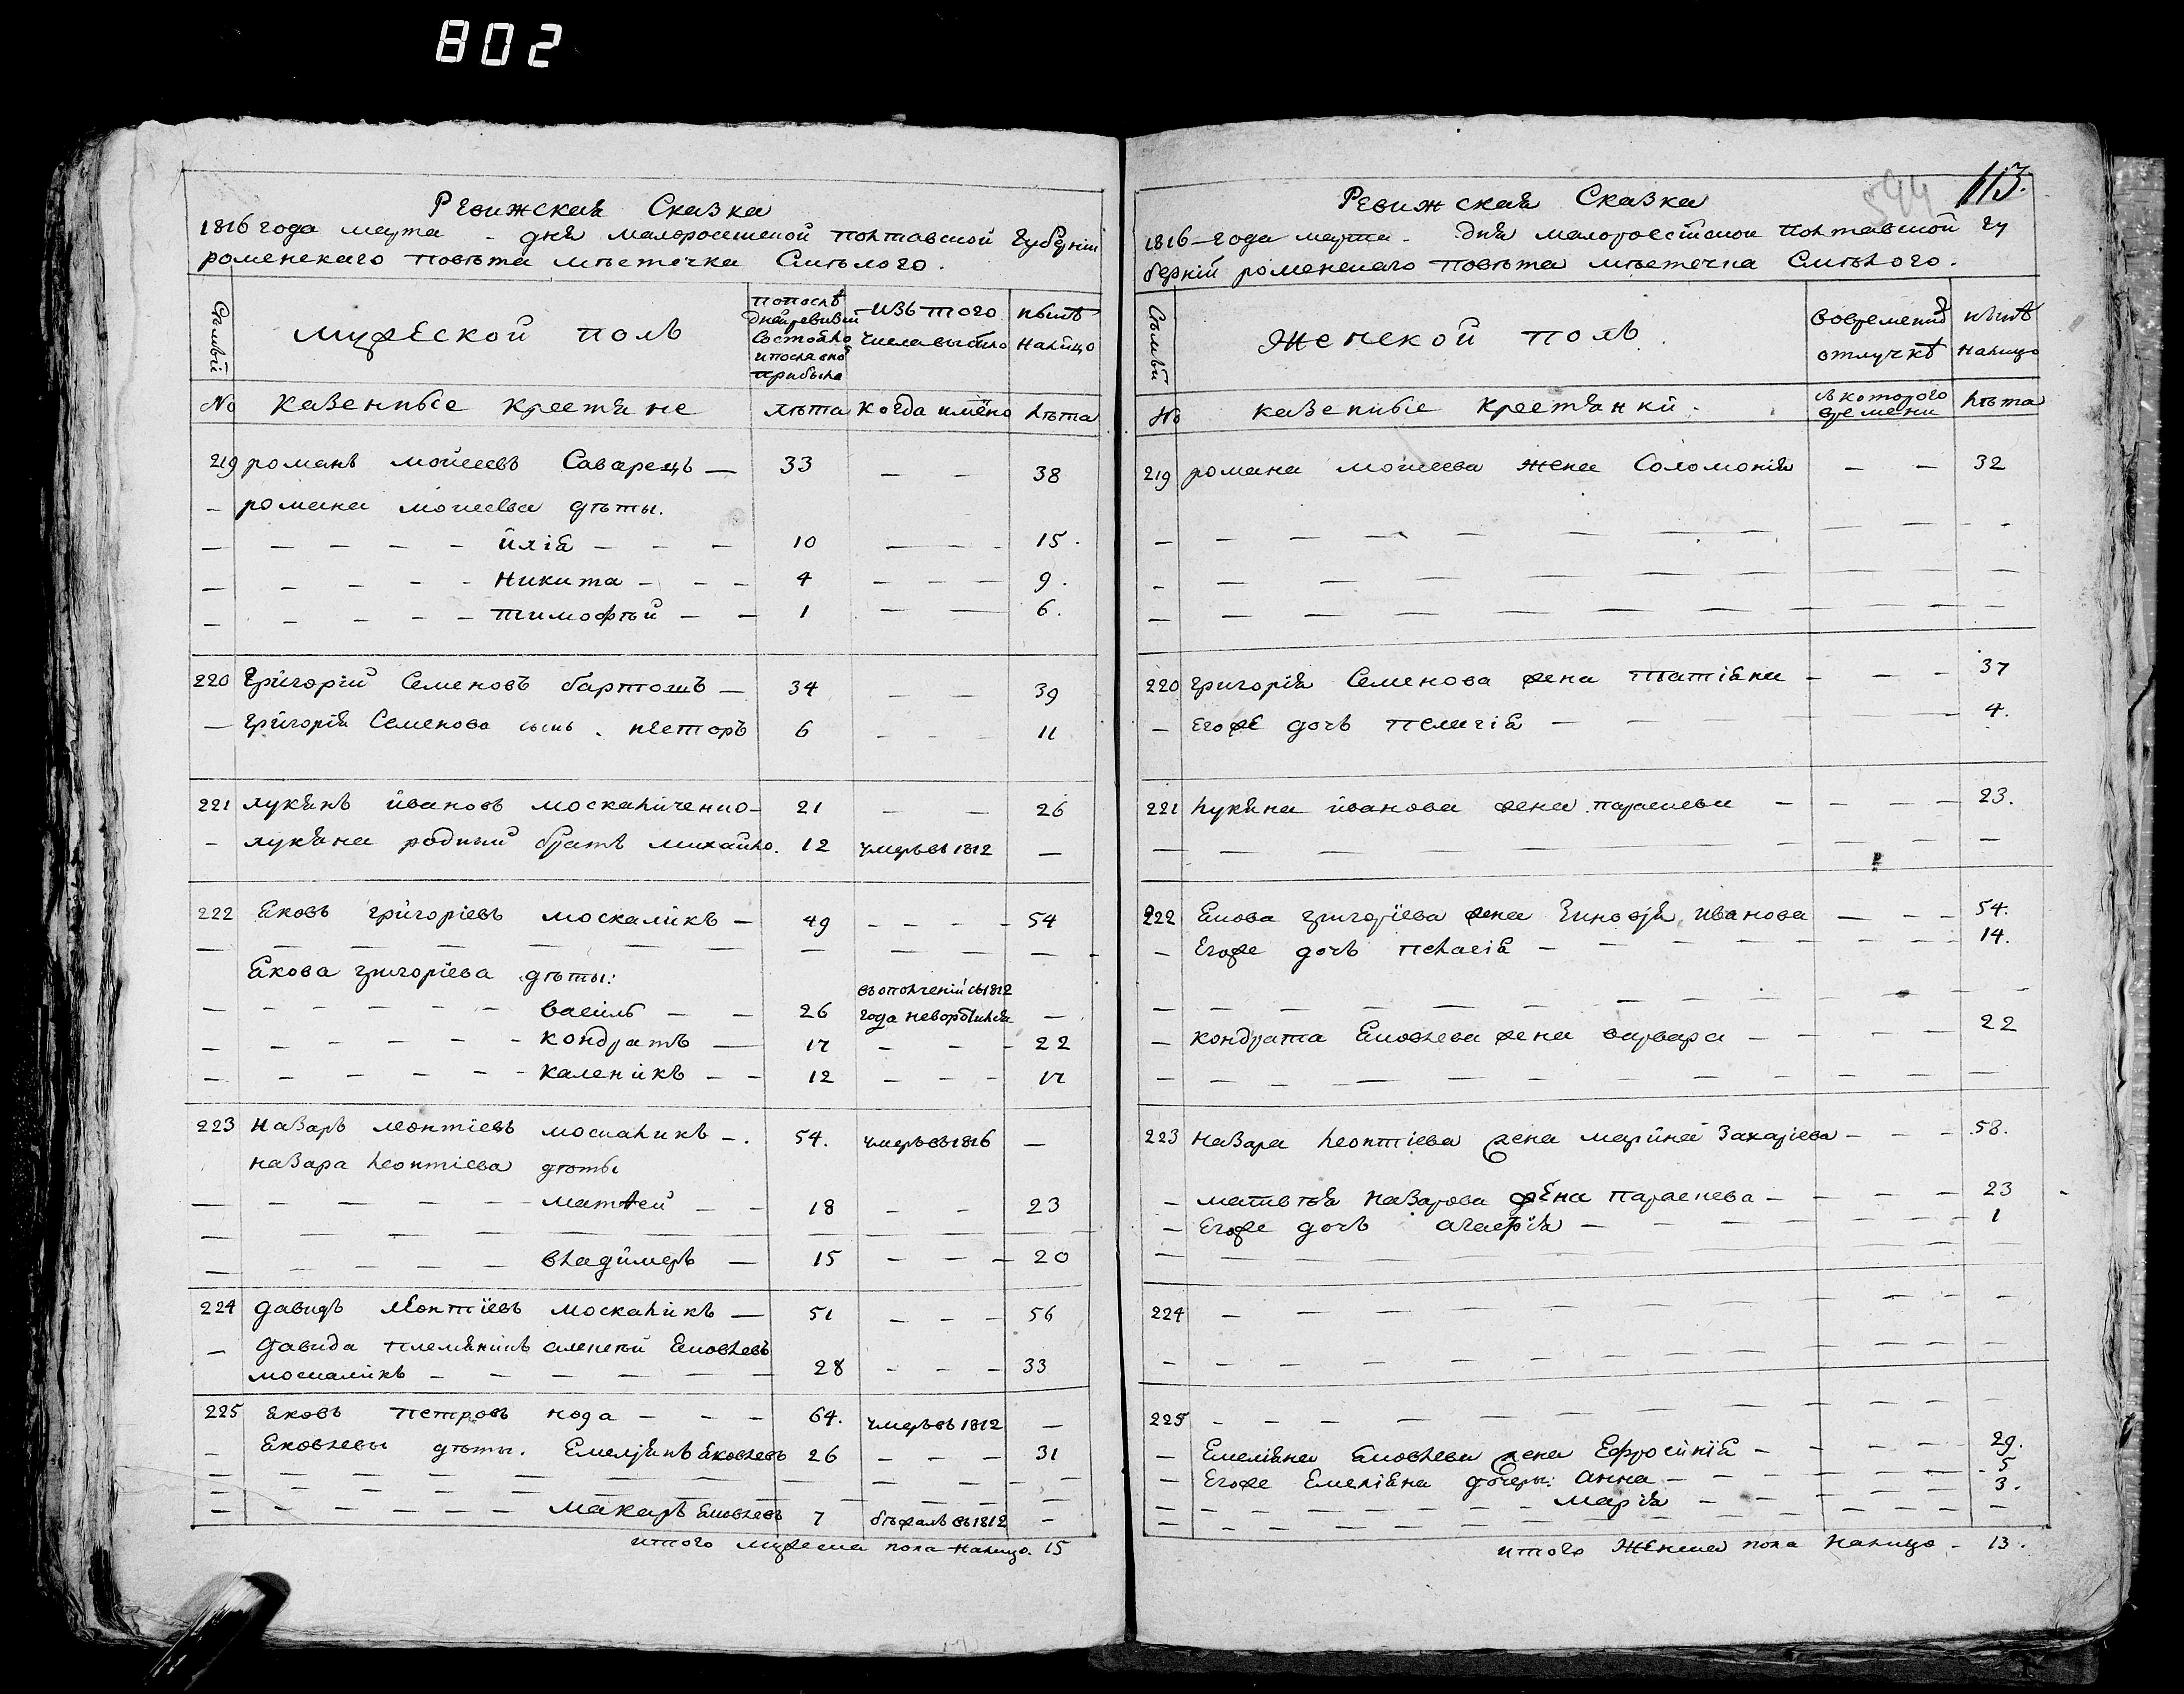 802
Ревижская Сказка
1816 года марта - дня малоросѣиской полтавской губерніи
роменскаго повѣта мѣстечка Смѣлого.
Семьи
мужеской полъ
попослѣ
дней ревизіи
состояло
и после оной
прибыло
изъ того
числа выбыло
нынѣ
налицо
No казенные крестяне лѣта когда имѣно лѣта
219 романъ мойсеевъ Саварецъ — 33 — — 38
— романа мойсеева дѣты.
— — — — — — йлія — — — 10 — — — 15.
— — — — — — Никита — — — 4 — — — 9.
— — — — — — тимофѣй — — 1 — — 6.
220 Григорій Семеновъ — 34 — — 39
— Григорія Семенова сынъ. несторъ 6 — — — 11
221 лукянъ йвановъ москаличенко — 21 — — 26
— лукяна родный братъ михайло. 12 умеръ въ 1812 —
222 Яковъ григоріевъ москаликъ — 49 — — — — 54
— — — — — — — — — — — —
Якова григорієва дѣты:
въ ополченіи съ 1812
— — — — — — василь — — 26 года неворотился —
— — — — — — кондратъ — 17 — — — 22
— — — — — — каленикъ — — 12 — — — 17
223 Назаръ леонтіевъ москаликъ —. 54. умеръ въ 1816 —
назара леонтіева дѣты
— — — — — — матвей — — 18 — — 23
— — — — — — — — — — — —
— — — — — — владимеръ — 15 — — — 20
224 давидъ леонтіевъ москаликъ — 51 — — — 56
— давида племянникъ алексѣй Яковлевъ
москаликъ — — — — — — 28 — — — 33
225 Яковъ петровъ нода — — — 64. умеръ въ 1812 —
— Яковлевы дѣты. Емеліянъ Яковлевъ 26 — — — 31
— — — — — — — — — — — —
— — — — — — — — — — — —
— — — — — — макаръ Яковлевъ 7 бѣжалъ въ 1812 —
итого мужеска пола налицо. 15
544
113.
Ревижская Сказка
1816 — года марта — дня малоросѣйской полтавской гу
берній роменскаго повѣта мѣстечка Смѣлого.
Семьи
Женской полъ
вовременной
отлучкѣ
нынѣ
налицо
No казенные крестянки.
съ которого
времени
лѣта
219 романа мойсеева жена Соломонія — — 32
— — — — — — — — — — — —
— — — — — — — — — — — —
— — — — — — — — — — — —
220 григорія Семенова жена татіяна — — — — 37
— Егоже дочь пелагія — — — 4.
221 лукяна йванова жена параскева — — — — 23.
— — — — — — — — — — — —
222 Якова григоріева жена Зиновія йванова — — — 54.
— Егоже дочь пелагія — — — — — — 14.
— — — — — — — — — — — —
— кондрата Яковлева жена варвара — — — — — 22
— — — — — — — — — — — —
223 назара леонтіева жена марина Захаріева — — — 58.
— матвѣя назарова жена параскева — — — — 23
— Егоже дочь — — — — — — 1
— — — — — — — — — — — —
224 — — — — — — — — — — —
— — — — — — — — — — — —
225 — — — — — — — — — — —
— Емеліяна Яковлева жена Ефросинія — — — — 29.
— Егоже Емеліяна дочеры: анна — — — — 5
— — — — — — марія — — — — 3.
— — — — — — — — — — — —
итого женска пола налицо — 13.